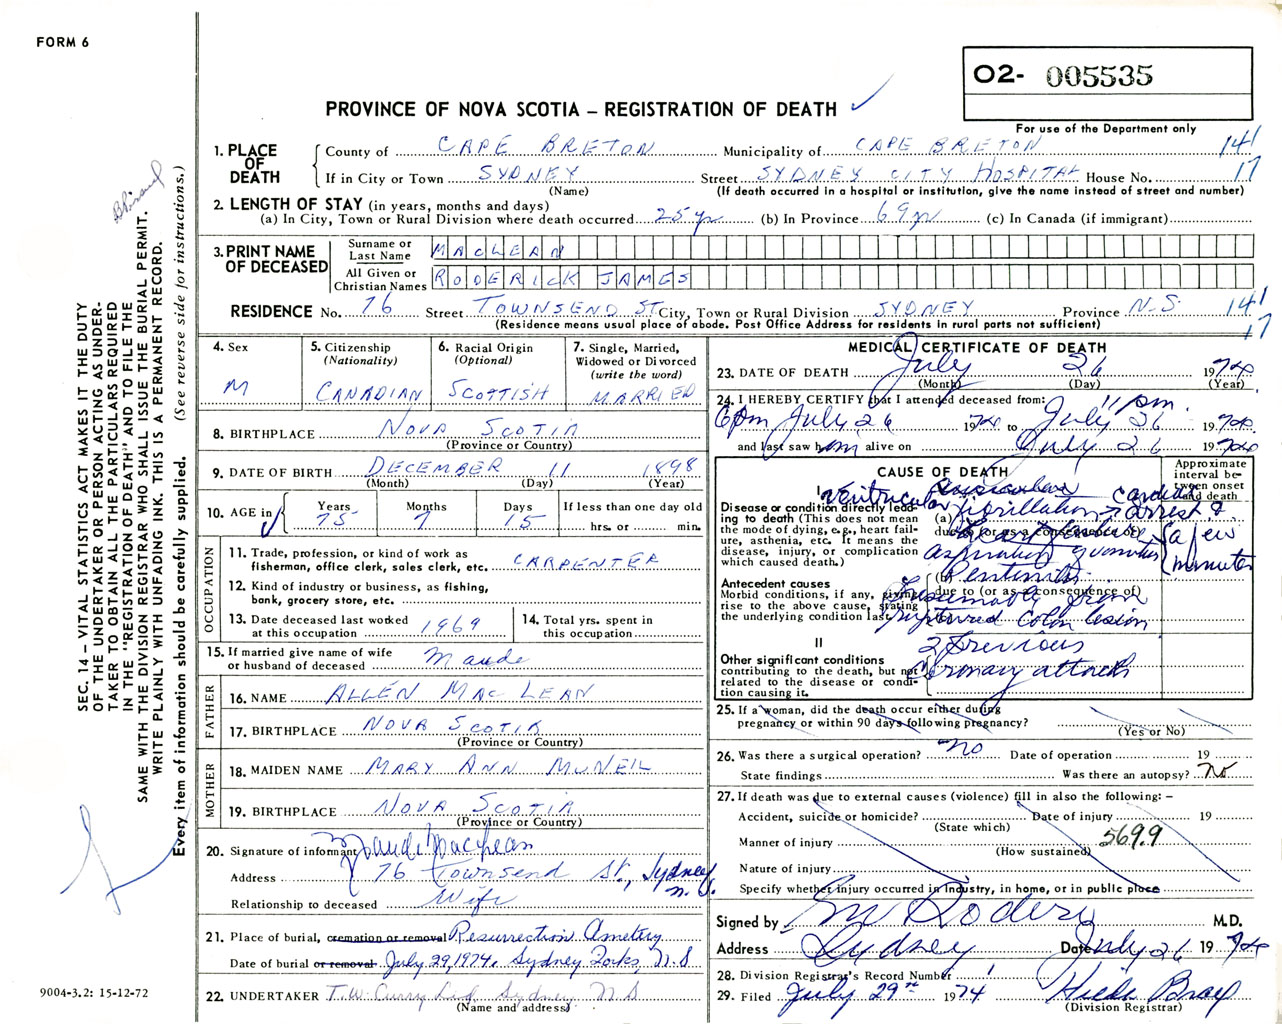 FORM 6
O2- 005535
PROVINCE OF NOVA SCOTIA – REGISTRATION OF DEATH
For use of the Department only
1. PLACE OF DEATH
County of CAPE BRETON Municipality of CAPE BRETON 141
If in City or Town SYDNEY Street SYDNEY CITY HOSPITAL House No. 17
(Name) (If death occurred in a hospital or institution, give the name instead of street and number)
2. LENGTH OF STAY (in years, months and days)
(a) In City, Town or Rural Division where death occurred 25 yr (b) In Province 69 yr (c) In Canada (if immigrant)
3. PRINT NAME OF DECEASED
Surname or Last Name MACLEAN
All Given or Christian Names RODERICK JAMES
RESIDENCE No. 76 Street TOWNSEND ST. City, Town or Rural Division SYDNEY Province N.S. 141
(Residence means usual place of abode. Post Office Address for residents in rural parts not sufficient) 17
4. Sex M
5. Citizenship (Nationality) CANADIAN
6. Racial Origin (Optional) SCOTTISH
7. Single, Married, Widowed or Divorced (write the word) MARRIED
8. BIRTHPLACE NOVA SCOTIA
(Province or Country)
9. DATE OF BIRTH DECEMBER 11 1898
(Month) (Day) (Year)
10. AGE in Years 75 Months 7 Days 15 If less than one day old hrs. or min.
OCCUPATION
11. Trade, profession, or kind of work as fisherman, office clerk, sales clerk, etc. CARPENTER
12. Kind of industry or business, as fishing, bank, grocery store, etc.
13. Date deceased last worked at this occupation 1969
14. Total yrs. spent in this occupation
15. If married give name of wife or husband of deceased Maude
FATHER
16. NAME ALLEN MACLEAN
17. BIRTHPLACE NOVA SCOTIA
(Province or Country)
MOTHER
18. MAIDEN NAME MARY ANN McNEIL
19. BIRTHPLACE NOVA SCOTIA
(Province or Country)
20. Signature of informant Maude MacLean
Address 76 Townsend St., Sydney N.S.
Relationship to deceased Wife
21. Place of burial, cremation or removal Resurrection Cemetery
Date of burial or removal July 29, 1974. Sydney Forks, N.S
22. UNDERTAKER T.W. Curry Ltd Sydney N S
(Name and address)
MEDICAL CERTIFICATE OF DEATH
23. DATE OF DEATH July 26 1974
(Month) (Day) (Year)
24. I HEREBY CERTIFY that I attended deceased from: 11 pm.
6 pm July 26 1974 to July 26 1974
and last saw him alive on July 26 1974
CAUSE OF DEATH
Approximate interval between onset and death
I
Disease or condition directly leading to death (This does not mean the mode of dying, e.g., heart failure, asthenia, etc. It means the disease, injury, or complication which caused death.)
(a) Ventricular fibrillation cardiac arrest &
due to (or as a consequence of)
aspiration of vomitus
a few minutes
Antecedent causes
Morbid conditions, if any, giving rise to the above cause, stating the underlying condition last
(b) Peritonitis
due to (or as a consequence of)
Presumably from
ruptured colon lesion
II
Other significant conditions contributing to the death, but not related to the disease or condition causing it.
2 previous
coronary attacks
25. If a woman, did the death occur either during pregnancy or within 90 days following pregnancy?
(Yes or No)
26. Was there a surgical operation? no Date of operation 19
State findings Was there an autopsy? no
27. If death was due to external causes (violence) fill in also the following: –
Accident, suicide or homicide? Date of injury 19
(State which)
Manner of injury 569.9
(How sustained)
Nature of injury
Specify whether injury occurred in industry, in home, or in public place
Signed by M.D.
Address Sydney Date July 26 1974
28. Division Registrar's Record Number 1
29. Filed July 29th 1974 Hilda Bray
(Division Registrar)
SEC. 14 – VITAL STATISTICS ACT MAKES IT THE DUTY
OF THE UNDERTAKER OR PERSON ACTING AS UNDER-
TAKER TO OBTAIN ALL THE PARTICULARS REQUIRED
IN THE "REGISTRATION OF DEATH" AND TO FILE THE
SAME WITH THE DIVISION REGISTRAR WHO SHALL ISSUE THE BURIAL PERMIT.
WRITE PLAINLY WITH UNFADING INK. THIS IS A PERMANENT RECORD.
Every item of information should be carefully supplied. (See reverse side for instructions.)
9004-3.2: 15-12-72